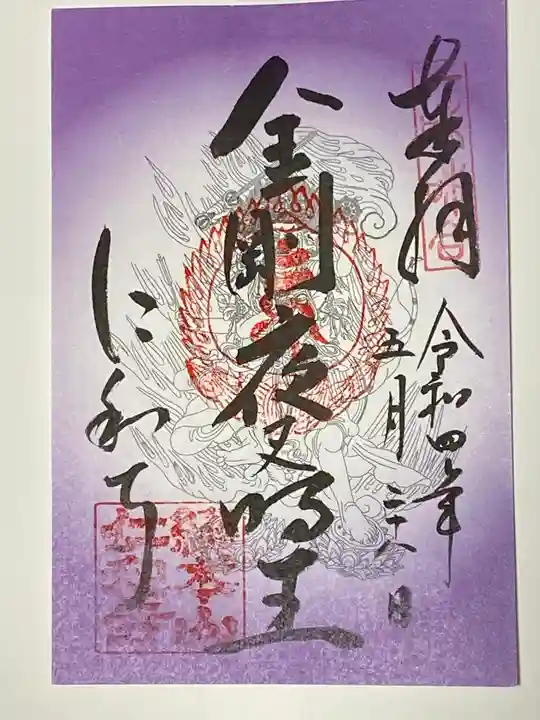 奉拝
令和四年
五月二十八日
金剛夜叉明王
仁和寺